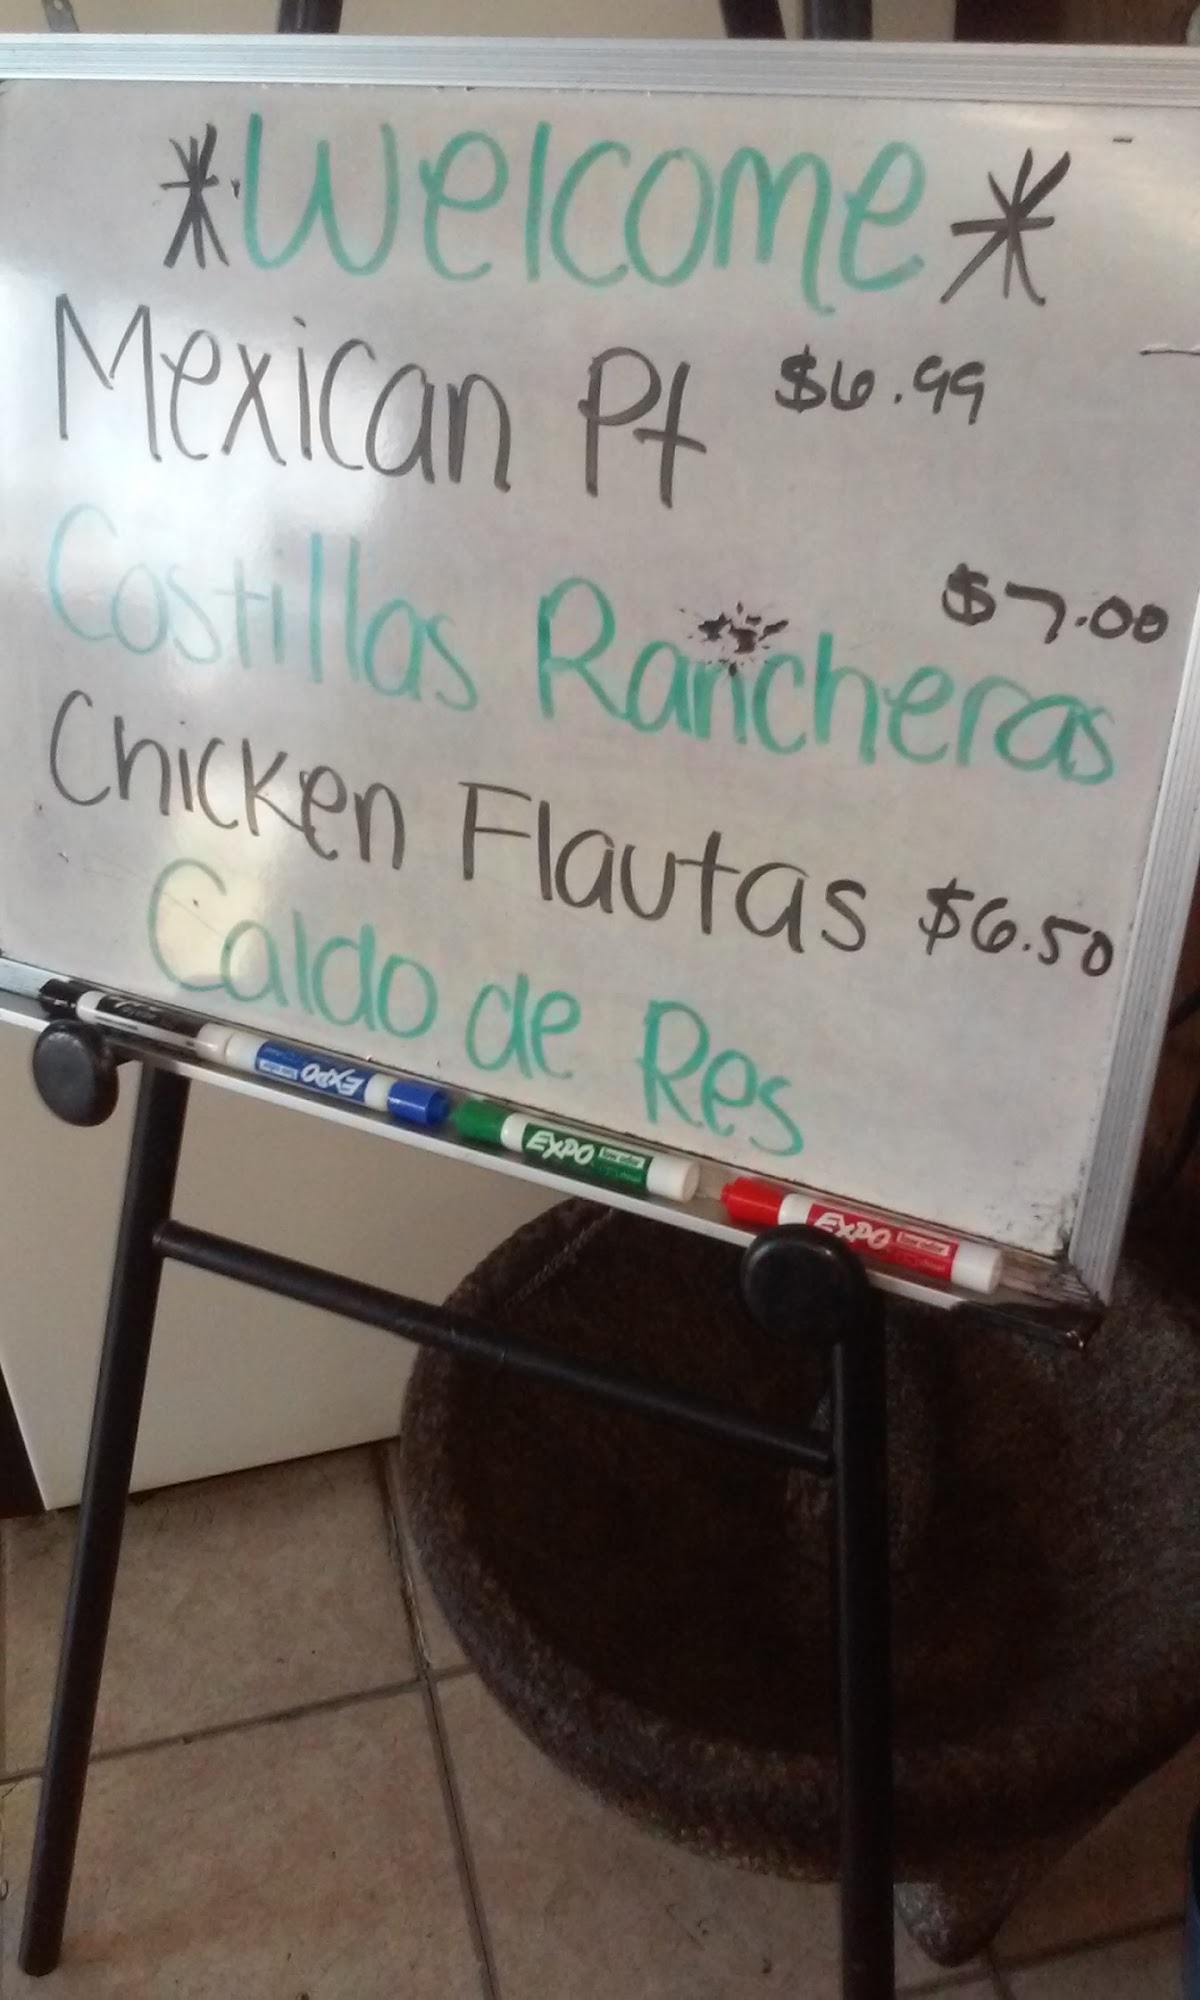 *Welcome*
Mexican Pt $6.99
$7.00
Costillas Rancheras
Chicken Flautas $6.50
Caldo de Res
EXPO
EXPO
EXPO